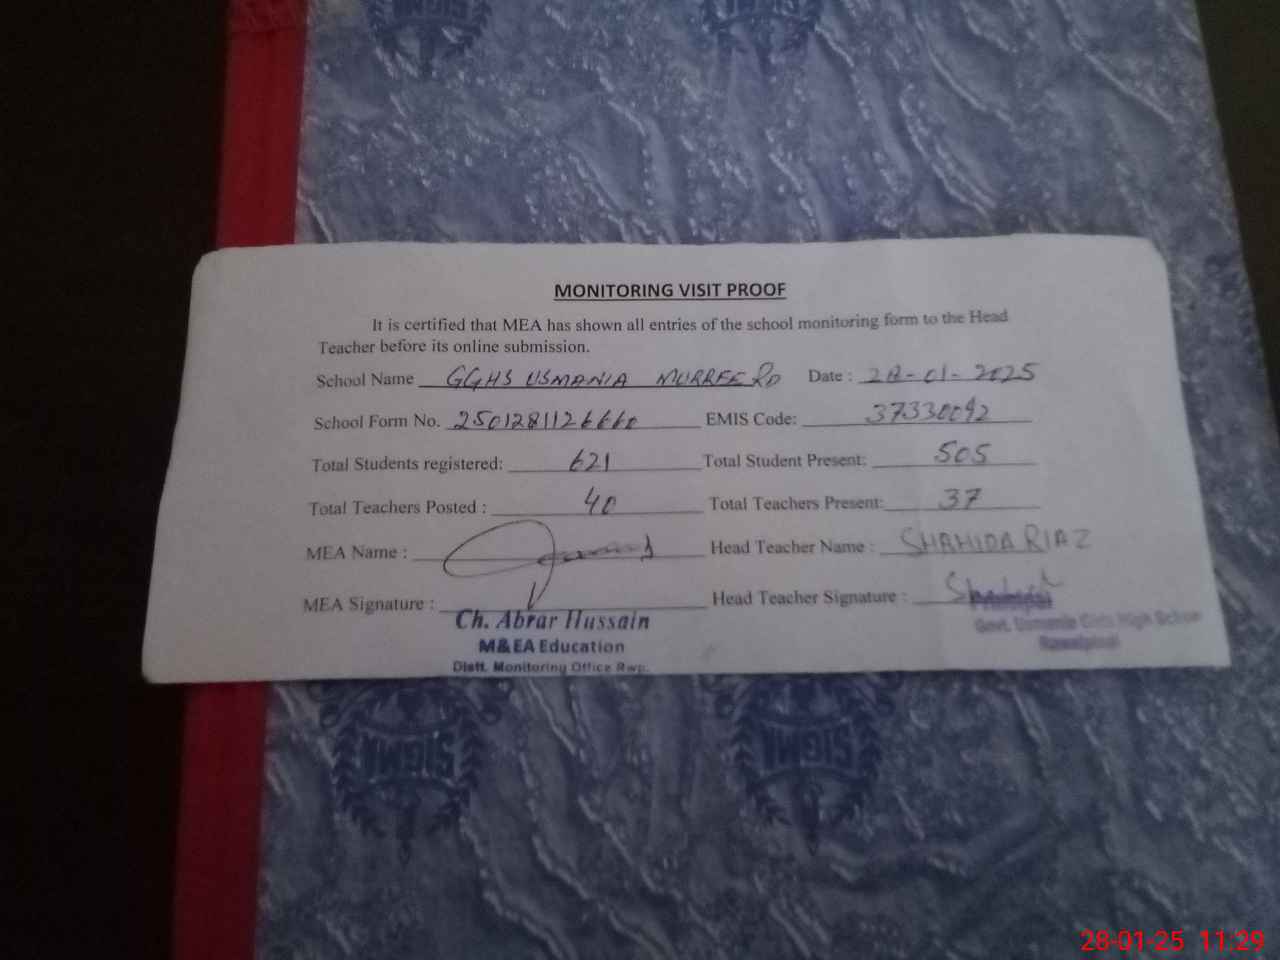 SIGMA
MONITORING VISIT PROOF
It is certified that MEA has shown all entries of the school monitoring form to the Head
Teacher before its online submission.
School Name GGHS USMANIA MURREE RD Date : 28-01-2025
School Form No. 2501281126660 EMIS Code: 37330092
Total Students registered: 621 Total Student Present: 505
Total Teachers Posted : 40 Total Teachers Present: 37
MEA Name : Head Teacher Name : SHAHIDA RIAZ
MEA Signature : Head Teacher Signature :
Ch. Abrar Hussain
M&EA Education
Distt. Monitoring Office Rwp.
Principal
Govt. Usmania Girls High School
Rawalpindi
SIGMA SIGMA
28-01-25 11:29